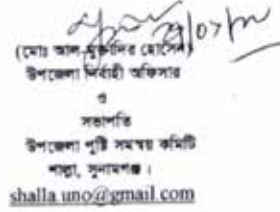 (মোঃ আল-মুক্তাদির হোসেন)
উপজেলা নির্বাহী অফিসার
ও
সভাপতি
উপজেলা পুষ্টি সমন্বয় কমিটি
শাল্লা, সুনামগঞ্জ।
shalla.uno@gmail.com